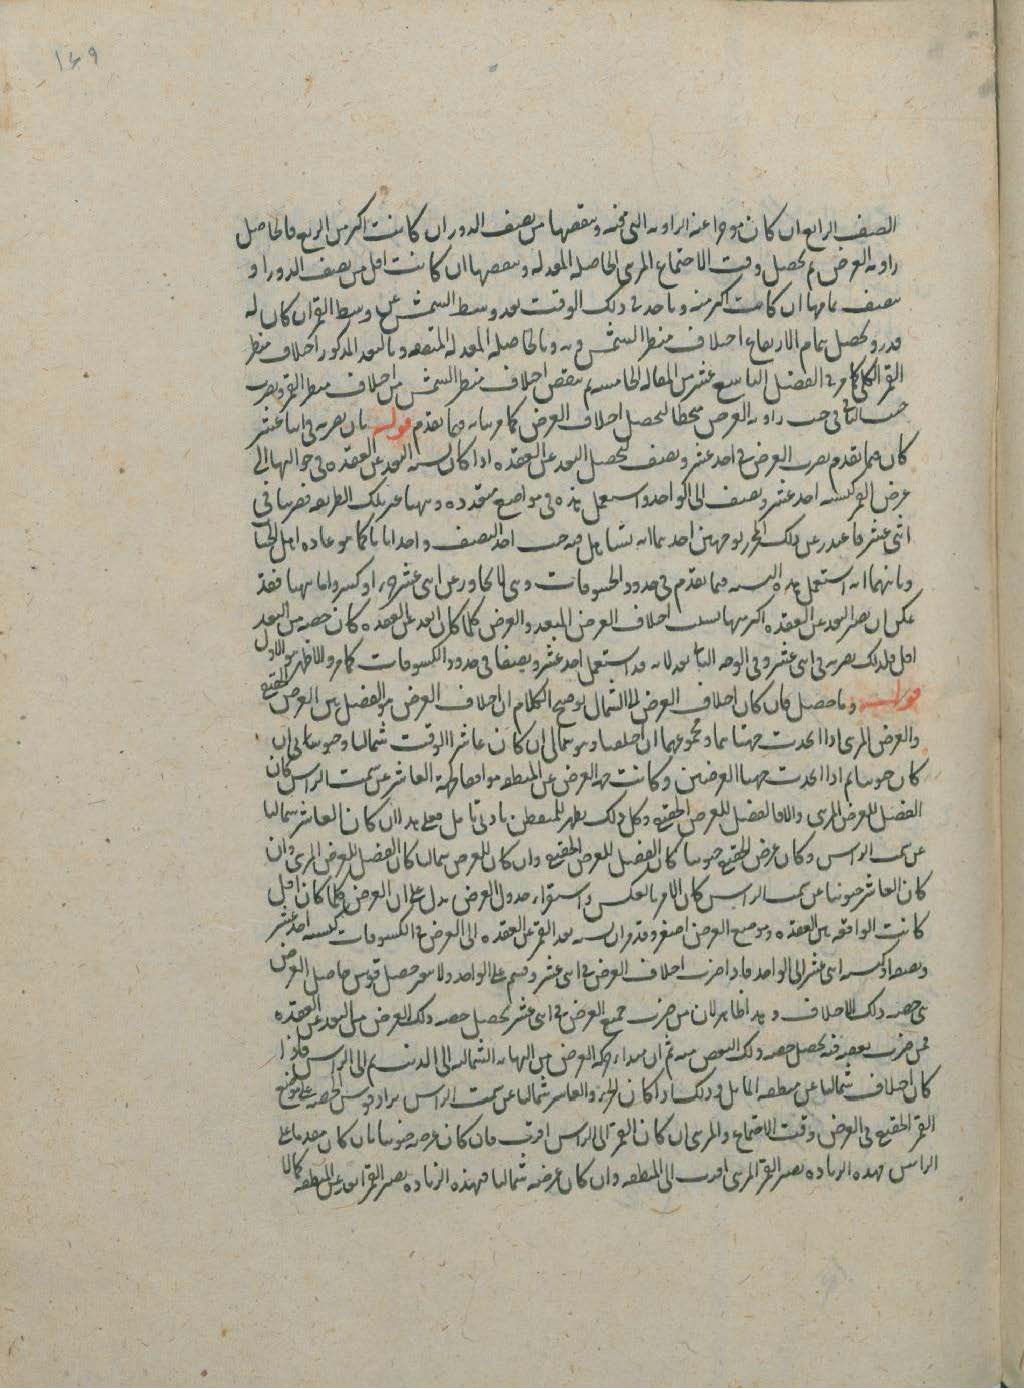 ١٤٩
الصف الرابع ان كان موخرا عنه الزاويه التى وينقصها من نصف الدور ان كانت اكثر من الربع فالحاصل
زاويه العرض ثم يحصل وقت الاجتماع المرى الحاصله المعدله وينقصها ان كانت اقل من نصف الدور او
نصف تمامها ان كانت اكثر منه وياخذ فى ذلك الوقت بعد وسط الشمس عن وسط القمر ان كان له
قدر ويحصل تمام الارتفاع اختلاف منظر الشمس فيه وبالخاصله المعدله المنصفه وبالبعد المذكور اختلاف منظر
القمر الكلى كما مر فى الفصل التاسع عشر من المقاله الخامسه ثم ينقص اختلاف منظر الشمس من اختلاف منظر القمر ويضرب
الباقى فى جيب زاويه العرض منحطا ليحصل اختلاف العرض كما مر بيانه فيما تقدم قوله بان يضربه فى اثنا عشر
كان فيما تقدم يضرب العرض فى احد عشر ونصف ليحصل البعد عن العقده اذا كان نسبه البعد عن العقده فى حواليها الى
عرض القمر كنسبه احد عشر ونصف الى الواحد واستعمل هذه فى مواضع متعدده وههنا غير تلك الطريقه فضربها فى
اثنى عشر فاعتذر عن ذلك المحرر بوجهين احدهما انه تساهل فيه حيث اخذ النصف واحدا تاما كما هو عاده اهل الحساب
وثانيهما انه استعمل هذه النسبه فيما تقدم فى حدود الخسوفات وهى لا تجاوز عن اثنى عشر جزءا وكسر واما ههنا فقد
يمكن ان يصير البعد عن العقده اكثر منها بسبب اختلاف العرض المبعد والعرض كلما كان ابعد عن العقده كان حصته من البعد
اقل فلذلك يضربه فى اثنى عشر وفى الوجه الثانى بعد لانه قد استعمل احد عشر ونصفا فى حدود الكسوفات كما مر والاظهر هو الاول
قوله وما حصل فان كان اختلاف العرض الى الشمال توضيح الكلام ان اختلاف العرض هو الفضل بين العرض الحقيقى
والعرض المرى اذا اتحدت جهتاهما ومجموعهما ان اختلفتا وهو شمالى ان كان عاشر الوقت شماليا وجنوبى ان
كان جنوبيا ثم اذا اتحدت جهتا العرضين وكانت جهه العرض عن المنطقه موافقا لجهه العاشر عن سمت الراس كان
الفضل للعرض المرى والا فالفضل للعرض الحقيقى وكل ذلك يظهر للمتفطن بادنى تامل فعلى هذا ان كان العاشر شماليا
عن سمت الراس وكان عرض الحقيقى جنوبيا كان الفضل للعرض الحقيقى وان كان للعرض شماليا كان الفضل للعرض المرى وان
كان العاشر جنوبيا عن سمت الراس كان الامر بالعكس واستقراء جدول العرض يدل على ان العرض كلما كان اقل
كانت الواقعه بين العقده وموضع العرض اصغر وقد مر ان نسبه بعد القمر عن العقده الى العرض فى الكسوفات كنسبه احد عشر
ونصف او كنسبه اثنى عشر الى الواحد فاذا ضرب اختلاف العرض فى اثنى عشر وقسم على الواحد ولا يتغير حصل قوس حاصل العرض
هى حصه ذلك الاختلاف وهذا ظاهر لان من ضرب جميع العرض فى اثنى عشر يحصل حصه ذلك العرض من البعد عن العقده
فمن ضرب بعضه فيه يحصل حصه ذلك البعض منه ثم ان مبدا حركه العرض من النهايه الشماليه الى الذنب ثم الى الراس فاذا
كان اختلاف شماليا عن منطقه المايل وذلك اذا كان الجزء العاشر شماليا عن سمت الراس يزاد قوس الحصه على موضع
القمر الحقيقى فى العرض وقت الاجتماع والمرى ان كان القمر الى الراس اقرب فان كان عرضه جنوبيا بان كان مقدما على
الراس فبهذه الزياده يصير القمر المرى اقرب الى المنطقه وان كان عرضه شماليا فبهذه الزياده يصير القمر ابعد عن المنطقه